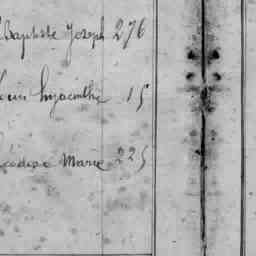 Baptiste Joseph 276
Louis hyacinthe 15
Marie 225